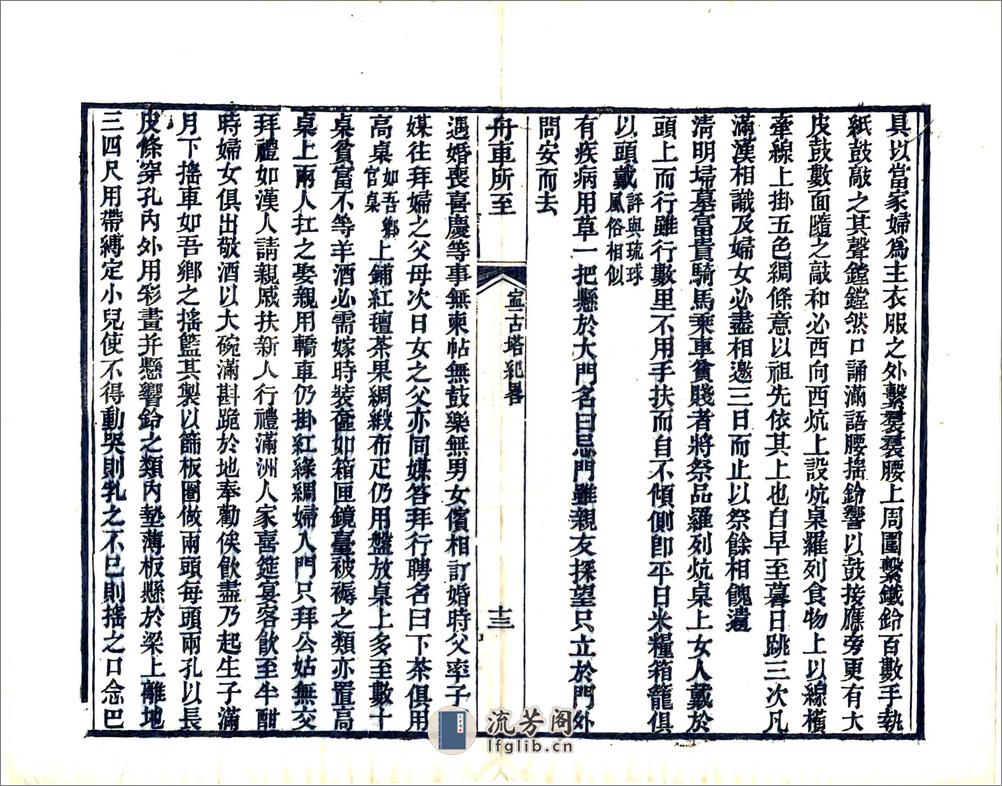 具以當家婦爲主衣服之外繫裙裙腰上周圍繫鐵鈴百數手執
紙鼓敲之其聲鏜鏜然口誦滿語腰搖鈴響以鼓接應旁更有大
皮鼓數面隨之敲和必西向西炕上設炕桌羅列食物上以線橫
牽線上掛五色綢條意以祖先依其上也自早至暮日跳三次凡
滿漢相識及婦女必盡相邀三日而止以祭餘相餽遺
清明埽墓富貴騎馬乘車貧賤者將祭品羅列炕桌上女人戴於
頭上而行雖行數里不用手扶而自不傾側卽平日米糧箱籠俱
以頭戴評與琉球風俗相似
有疾病用草一把懸於大門名曰忌門雖親友探望只立於門外
問安而去
舟車所至
寧古塔紀畧
十三
遇婚喪喜慶等事無柬帖無鼓樂無男女儐相訂婚時父率子同
媒往拜婦之父母次日女之父亦同媒答拜行聘名曰下茶俱用
高桌如吾鄉官桌上鋪紅氊茶果綢緞布疋仍用盤放桌上多至數十
桌貧富不等羊酒必需嫁時裝奩如箱匣鏡臺被褥之類亦置高
桌上兩人扛之娶親用轎車仍掛紅綠綢婦入門只拜公姑無交
拜禮如漢人請親戚扶新人行禮滿洲人家喜筵宴客飲至半酣
時婦女俱出敬酒以大碗滿斟跪於地奉勸俟飲盡乃起生子滿
月下搖車如吾鄉之搖籃其製以篩板圈做兩頭每頭兩孔以長
皮條穿孔內外用彩畫并懸響鈴之類內墊薄板懸於梁上離地
三四尺用帶縛定小兒使不得動哭則乳之不已則搖之口念巴
流芳閣
lfglib.cn